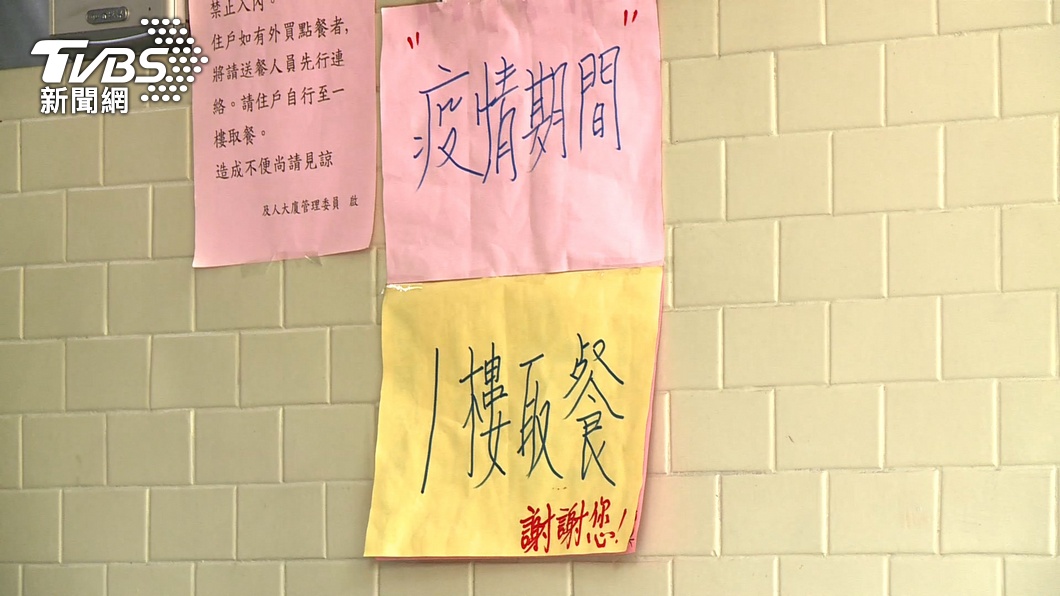 TVBS
新聞網
禁止入內。
住戶如有外買點餐者,
將請送餐人員先行連
絡。請住戶自行至一
樓取餐。
造成不便尚請見諒
及人大廈管理委員 啟
"疫情期間"
1樓取餐
謝謝您!